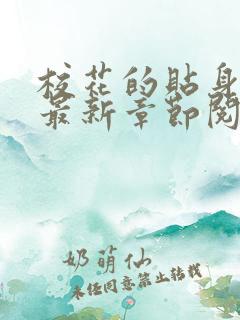 校花的贴身
最新章节阅
奶萌仙
未经同意禁止转载